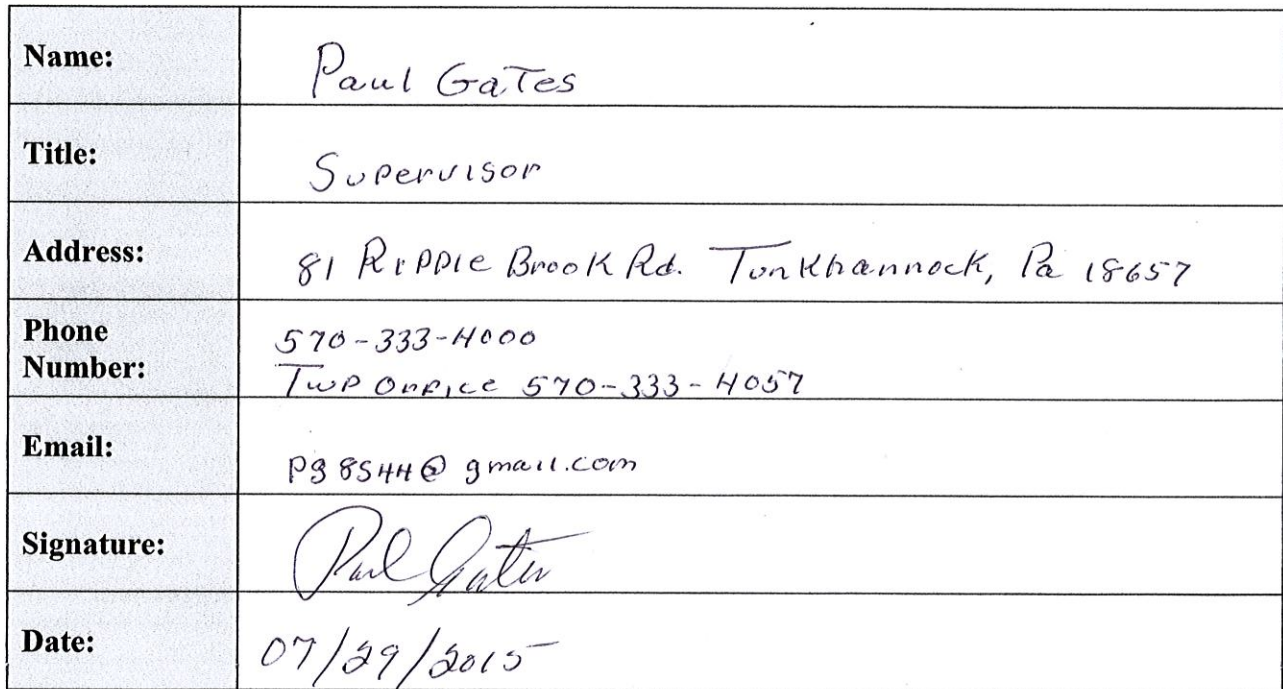 Name: Paul Gates
Title: Supervisor
Address: 81 Ripple Brook Rd. Tunkhannock, Pa 18657
Phone 570-333-4000
Number: Twp Office 570-333-4057
Email: pg8544@gmail.com
Signature: Paul Gates
Date: 07/29/2015